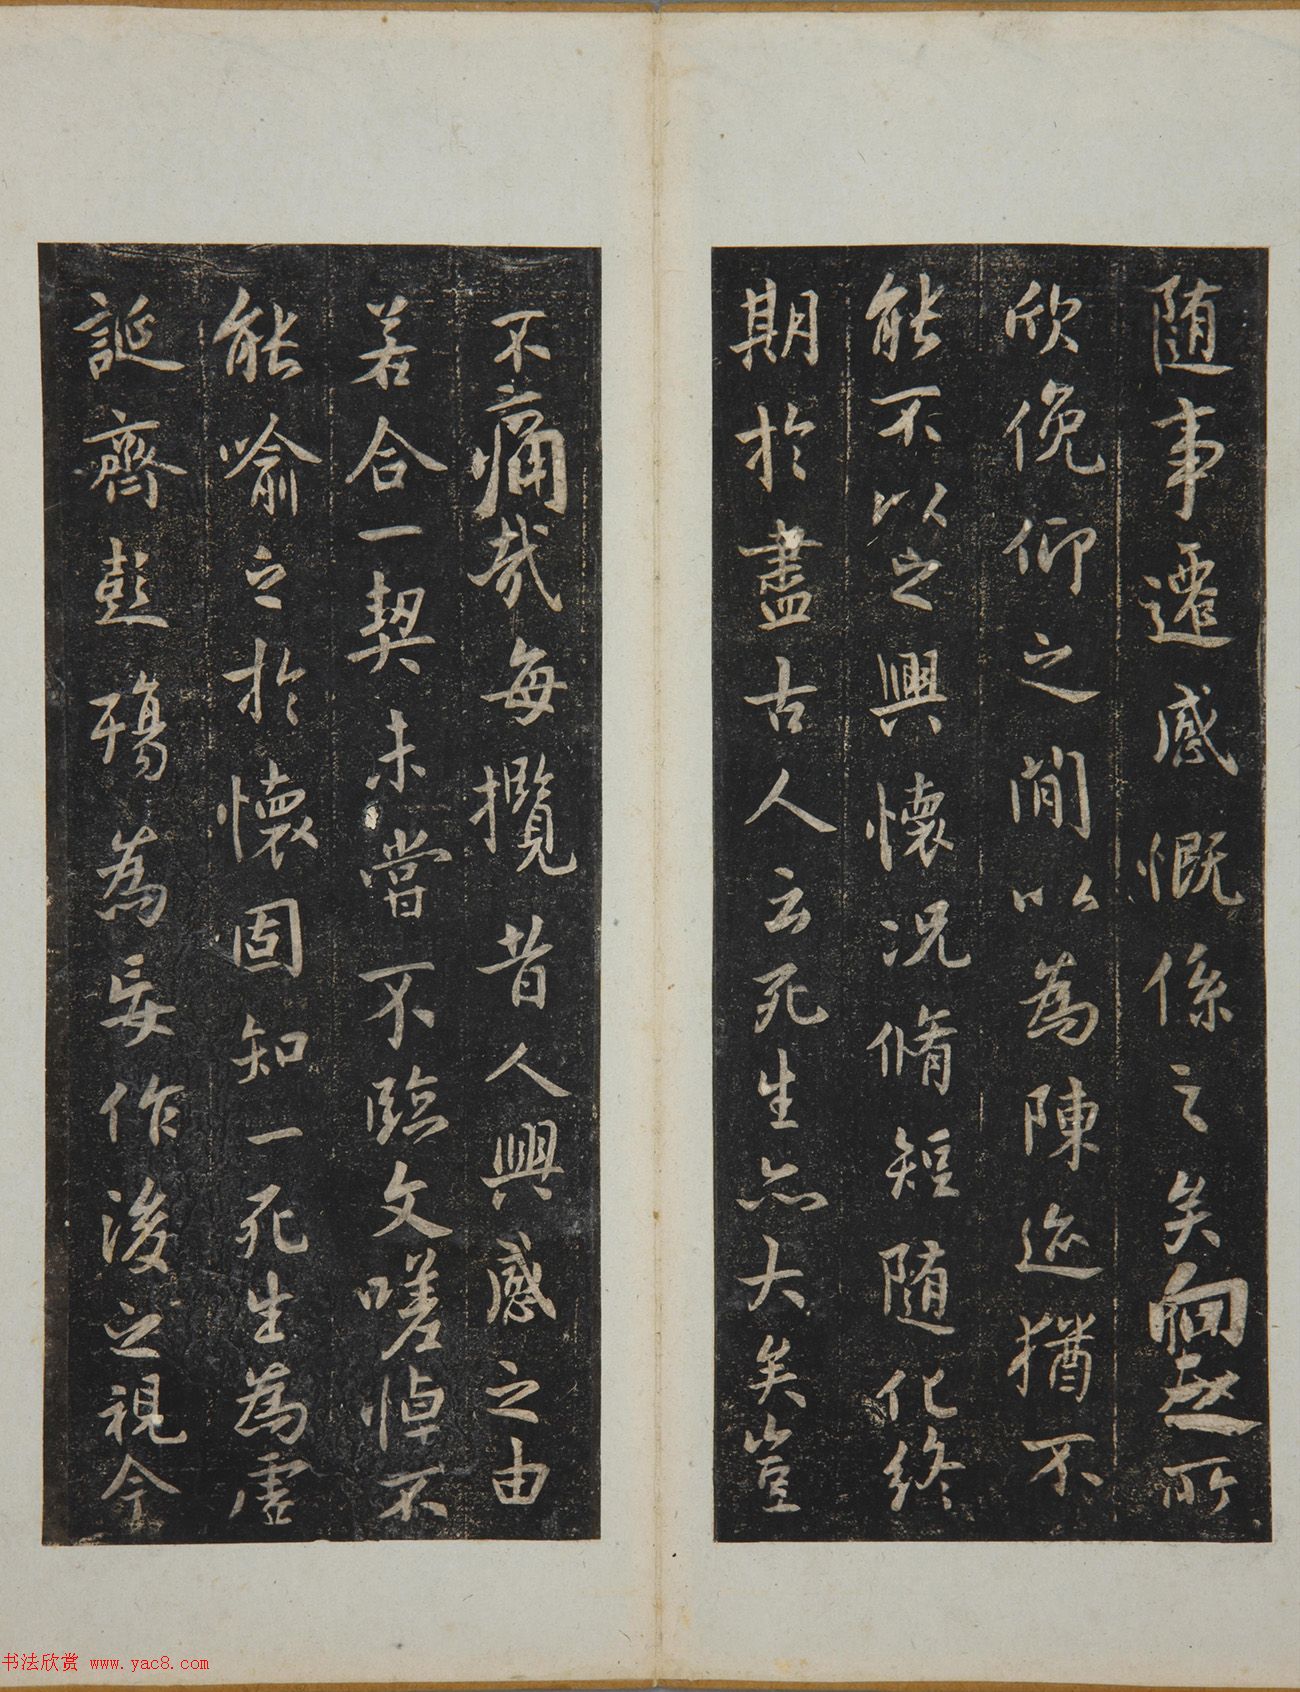 随事遷感慨係之矣向之所
欣俛仰之間以為陳迹猶不
能不以之興懷況脩短随化終
期於盡古人云死生亦大矣豈
不痛哉每攬昔人興感之由
若合一契未嘗不臨文嗟悼不
能喻之於懷固知一死生為虛
誕齊彭殤為妄作後之視今
书法欣赏 www.yac8.com